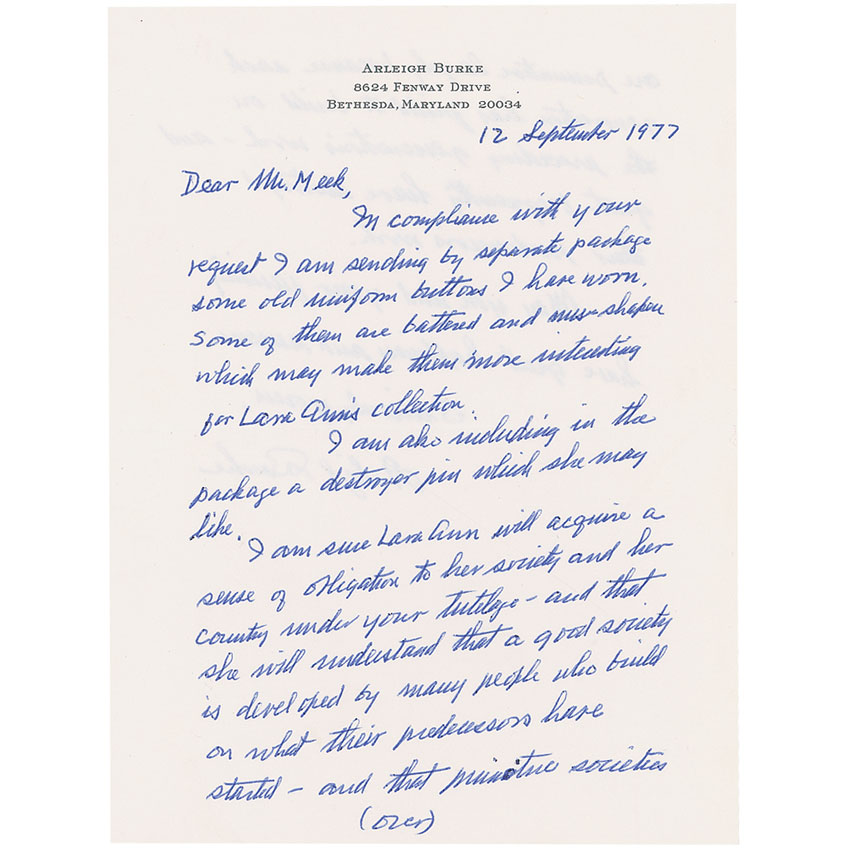 ARLEIGH BURKE
8624 FENWAY DRIVE
BETHESDA, MARYLAND 20034
12 September 1977
Dear Mr. Meek,
In compliance with your
request I am sending by separate package
some old uniform buttons I have worn.
Some of them are battered and mis-shapen
which may make them more interesting
for Lara Ann's collection.
I am also including in the
package a destroyer pin which she may
like.
I am sure Lara Ann will acquire a
sense of obligation to her society and her
country under your tutelage - and that
she will understand that a good society
is developed by many people who build
on what their predecessors have
started - and that primitive societies
(over)